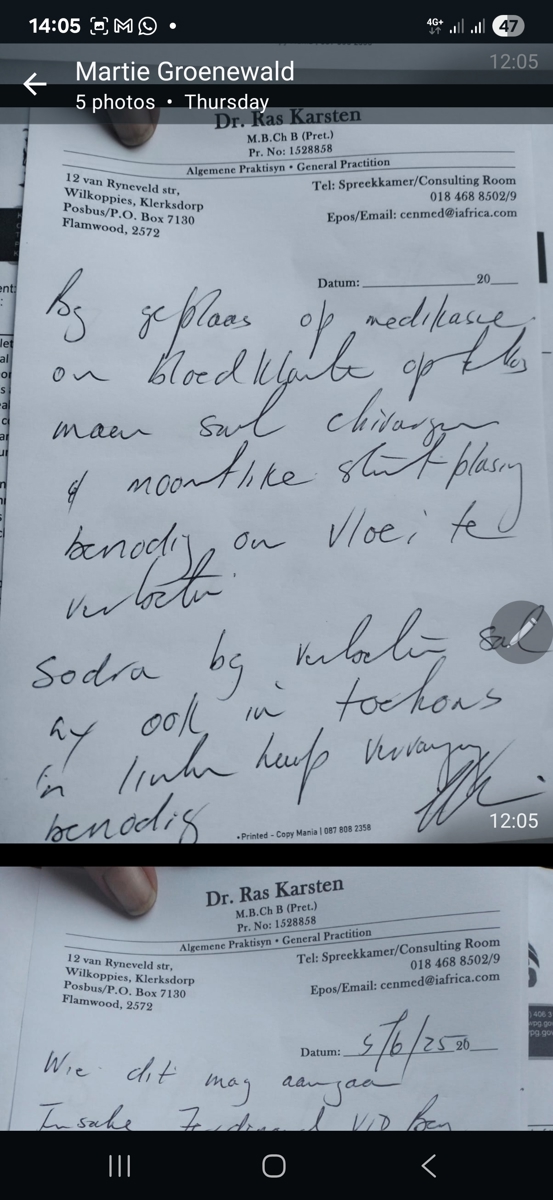 14:05
4G+
47
Martie Groenewald
5 photos • Thursday
12:05
Dr. Ras Karsten
M.B.Ch B (Pret.)
Pr. No: 1528858
Algemene Praktisyn • General Practition
12 van Ryneveld str,
Wilkoppies, Klerksdorp
Posbus/P.O. Box 7130
Flamwood, 2572
Tel: Spreekkamer/Consulting Room
018 468 8502/9
Epos/Email: cenmed@iafrica.com
Datum: 20
geplaas op medikasie
om bloedklonte op te los
maar sal chirurgie
moontlike stint plasing
benodig om vloei te
verbeter
Sodra bg verbeter sal
hy ook 'n
'n linker heup vervanging
benodig
• Printed - Copy Mania | 087 808 2358
12:05
Dr. Ras Karsten
M.B.Ch B (Pret.)
Pr. No: 1528858
Algemene Praktisyn • General Practition
12 van Ryneveld str,
Wilkoppies, Klerksdorp
Posbus/P.O. Box 7130
Flamwood, 2572
Tel: Spreekkamer/Consulting Room
018 468 8502/9
Epos/Email: cenmed@iafrica.com
Datum: 5/6/25 20
Wie dit mag aangaan
Insake